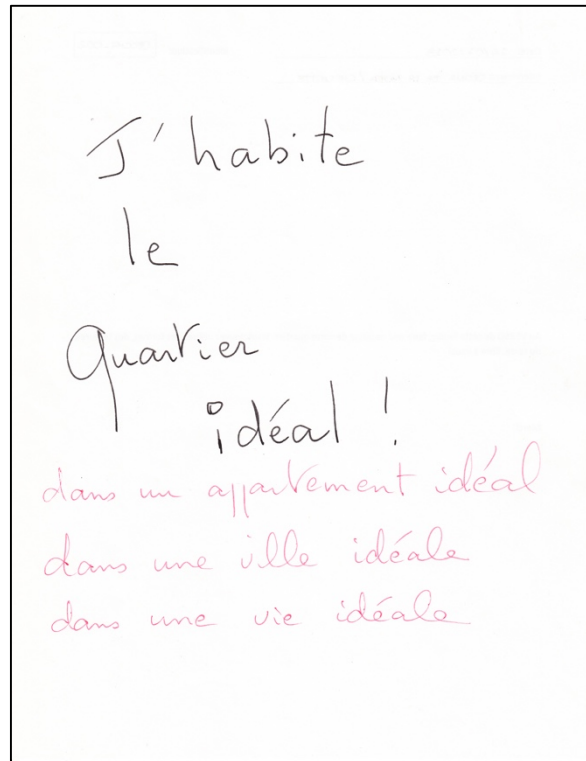 J'habite
le
Quartier
idéal !
dans un appartement idéal
dans une ville idéale
dans une vie idéale